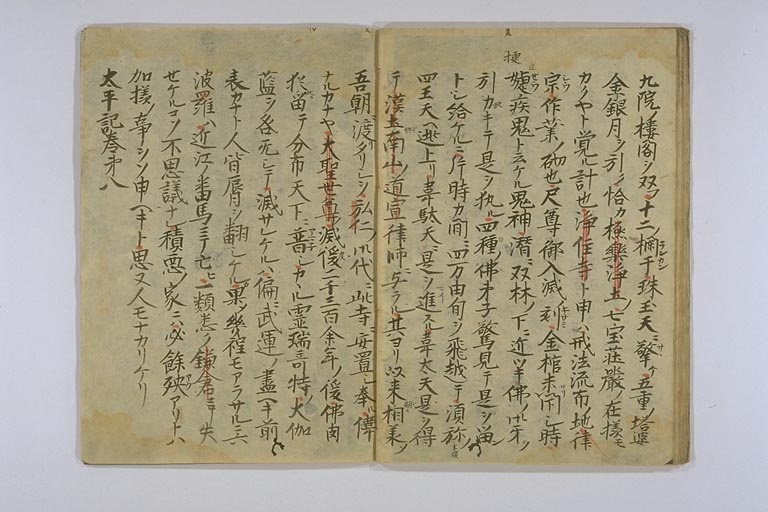 九院ノ樓閣ヲ双フ十二欄干珠玉天ニ擎ケ五重ノ塔婆
金銀月ヲ引ク恰カ極樂浄土ノ七宝荘嚴ノ在樣モ
カクヤト覚ル計也浄住寺ト申ハ戒法流布ノ地律
宗作業ノ砌也尺尊御入滅ノ刻金棺未閇時
捷疾鬼ト云ケル鬼神潜ニ双林ノ下ニ近ツキ佛ノ御牙ヲ
引カキテ是ヲ執ル四種ノ佛弟子驚見テ是ヲ留
トシ給ケルニ片時カ間ニ四万由旬ヲ飛越テ須弥
四王天ヘ逃上リ韋駄天ニ是ヲ進スル韋太天是ヲ得
テ漢土南山ノ道宣律師ニ与ラル其ヨリ以来相羕ノ
吾朝ニ渡タリシヲ弘仁ノ御代ニ此寺ニ安置シ奉ル偉
ナルカナヤ大聖世尊滅後二千三百余年ノ後佛肉
猶留テ分布天下ニ普シカヽル霊瑞奇特ノ大伽
藍ヲ咎无シテ滅サレケルハ偏ニ武運ノ盡ヘキ前
表カナト人皆脣ヲ翻シケル果シテ幾程モアラサルニ六
波羅ハ近江ノ番馬ニテ亡ヒ一類悉ク鎌倉ニテ失
セケルコソ不思議ナレ積悪ノ家ニハ必餘殃アリトハ
加樣ノ事ヲソ申ヘキト思ヌ人モナカリケリ
太平記巻第八